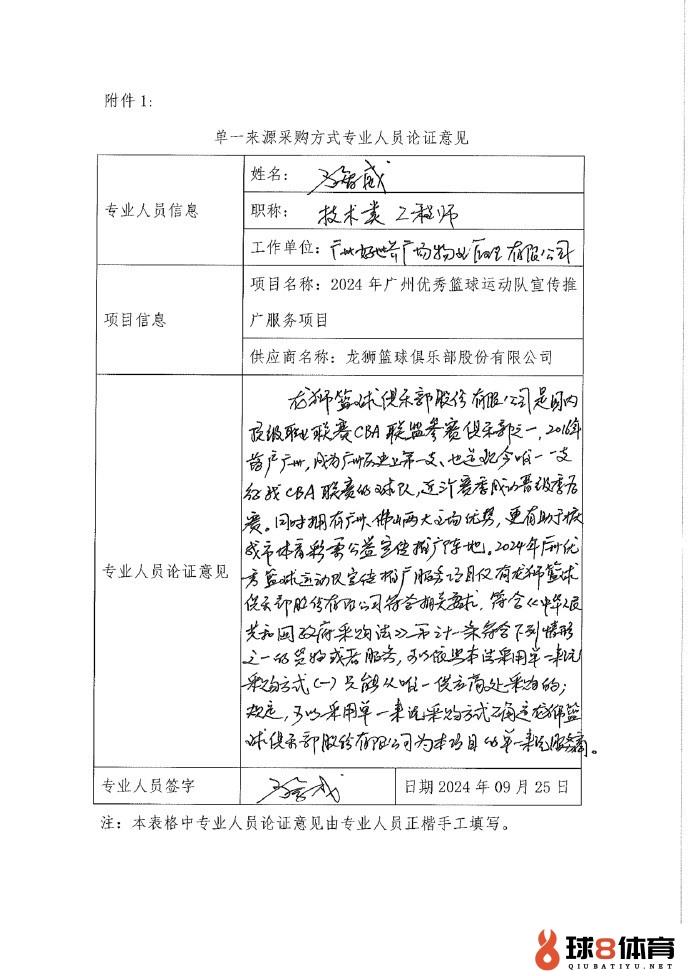 附件 1:
单一来源采购方式专业人员论证意见
专业人员信息
姓名:
职称: 技术类 工程师
工作单位: 广州好世界广场物业管理有限公司
项目信息
项目名称: 2024 年广州优秀篮球运动队宣传推
广服务项目
供应商名称: 龙狮篮球俱乐部股份有限公司
专业人员论证意见
龙狮篮球俱乐部股份有限公司是国内
顶级职业联赛CBA联盟参赛俱乐部之一, 2016年
落户广州, 成为广州历史上第一支、也是迄今唯一一支
征战CBA联赛的球队, 近两个赛季成功晋级季后
赛。同时拥有广州、佛山两大主场优势, 更有助于扩
大城市体育彩票公益宣传推广阵地。2024年广州优
秀篮球运动队宣传推广服务项目仅有龙狮篮球
俱乐部股份有限公司符合相关要求, 符合《中华人民
共和国政府采购法》第三十一条符合下列情形
之一的货物或者服务, 可以依照本法采用单一来源
采购方式 (一) 只能从唯一供应商处采购的;
规定, 可以采用单一来源采购方式确定龙狮篮
球俱乐部股份有限公司为本项目的单一来源服务商。
专业人员签字
日期 2024 年 09 月 25 日
注: 本表格中专业人员论证意见由专业人员正楷手工填写。
球8体育
QIUBATIYU.NET